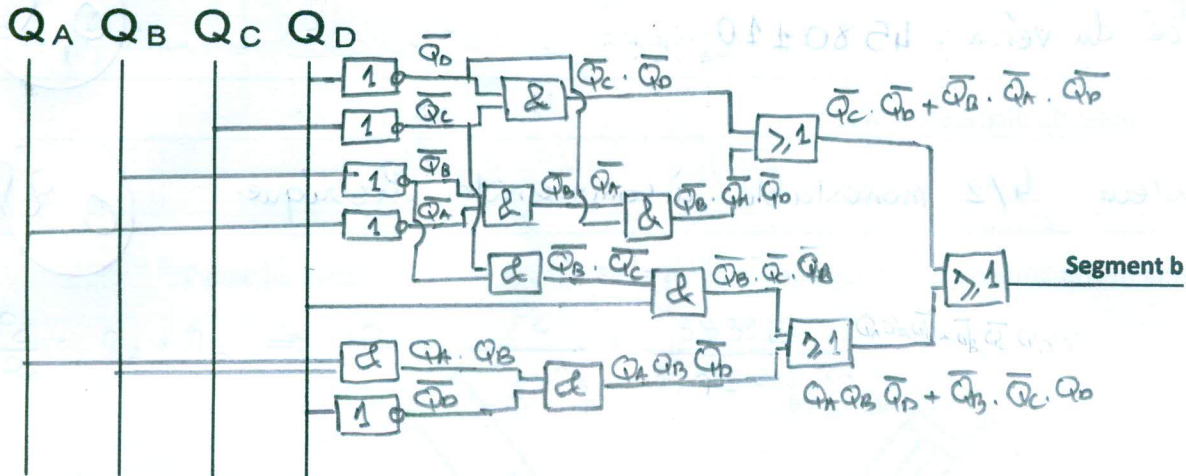 Q_A Q_B Q_C Q_D
1 \overline{Q_D}
1 \overline{Q_C}
& \overline{Q_C} . \overline{Q_D}
≥1 \overline{Q_C} . \overline{Q_D} + \overline{Q_B} . \overline{Q_A} . \overline{Q_D}
1 \overline{Q_B}
1 \overline{Q_A}
& \overline{Q_B} \overline{Q_A}
& \overline{Q_B} . \overline{Q_A} . \overline{Q_D}
& \overline{Q_B} . \overline{Q_C}
& \overline{Q_B} . \overline{Q_C} .
≥1 Segment b
& Q_A . Q_B
1 \overline{Q_D}
& Q_A Q_B \overline{Q_D}
≥1
Q_A Q_B \overline{Q_D} + \overline{Q_B} . \overline{Q_C} . Q_D